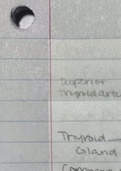 Superior
Thyroid arte
Thyroid
Gland
Common